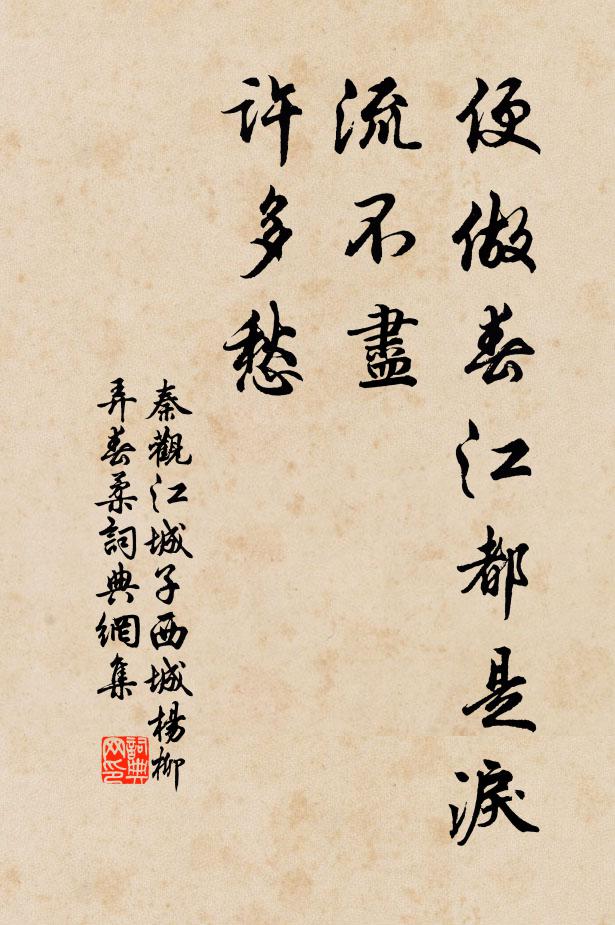 便做春江都是淚
流不盡
許多愁
秦觀江城子西城楊柳
弄春柔詞典網集
詞典
网印